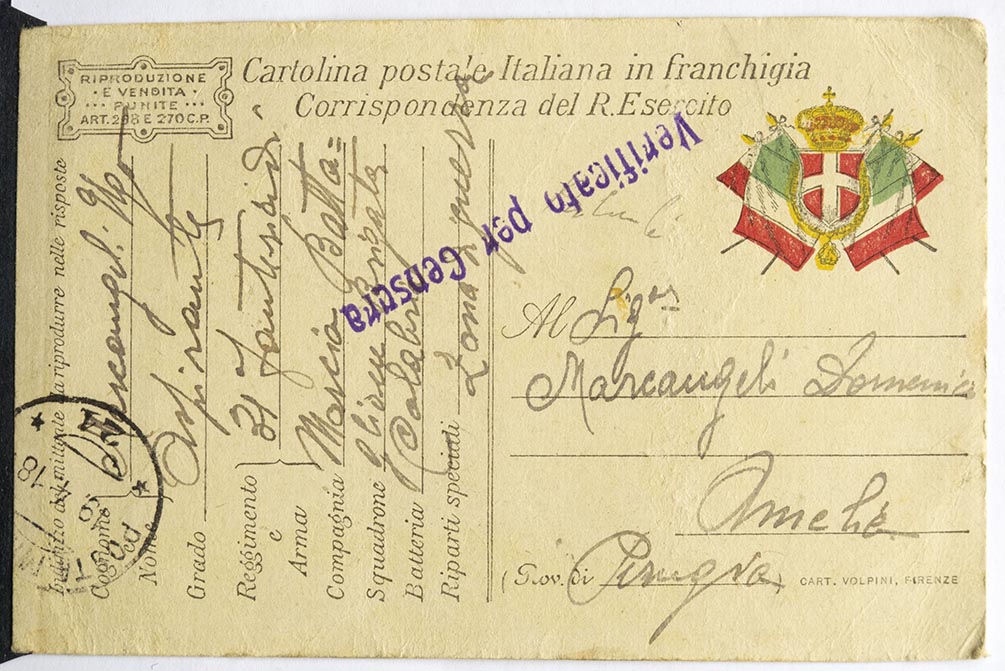 RIPRODUZIONE
E VENDITA
PUNITE
ART. 268 E 270 C.P.
Cartolina postale Italiana in franchigia
Corrispondenza del R. Esercito
Verificato per Censura
Indirizzo del mittente da riprodurre nelle risposte
Cognome
Nome Marcangeli Ugo
Grado Aspirante
Reggimento 31
e
Arma Fanteria
Compagnia Marcia Batta=
Squadrone glione
Batteria Calabria
Riparti speciali Zona guerra
Al Sig.
Marcangeli Domenico
Amelia
(Prov. di Perugia
CART. VOLPINI, FIRENZE
POSTA
18